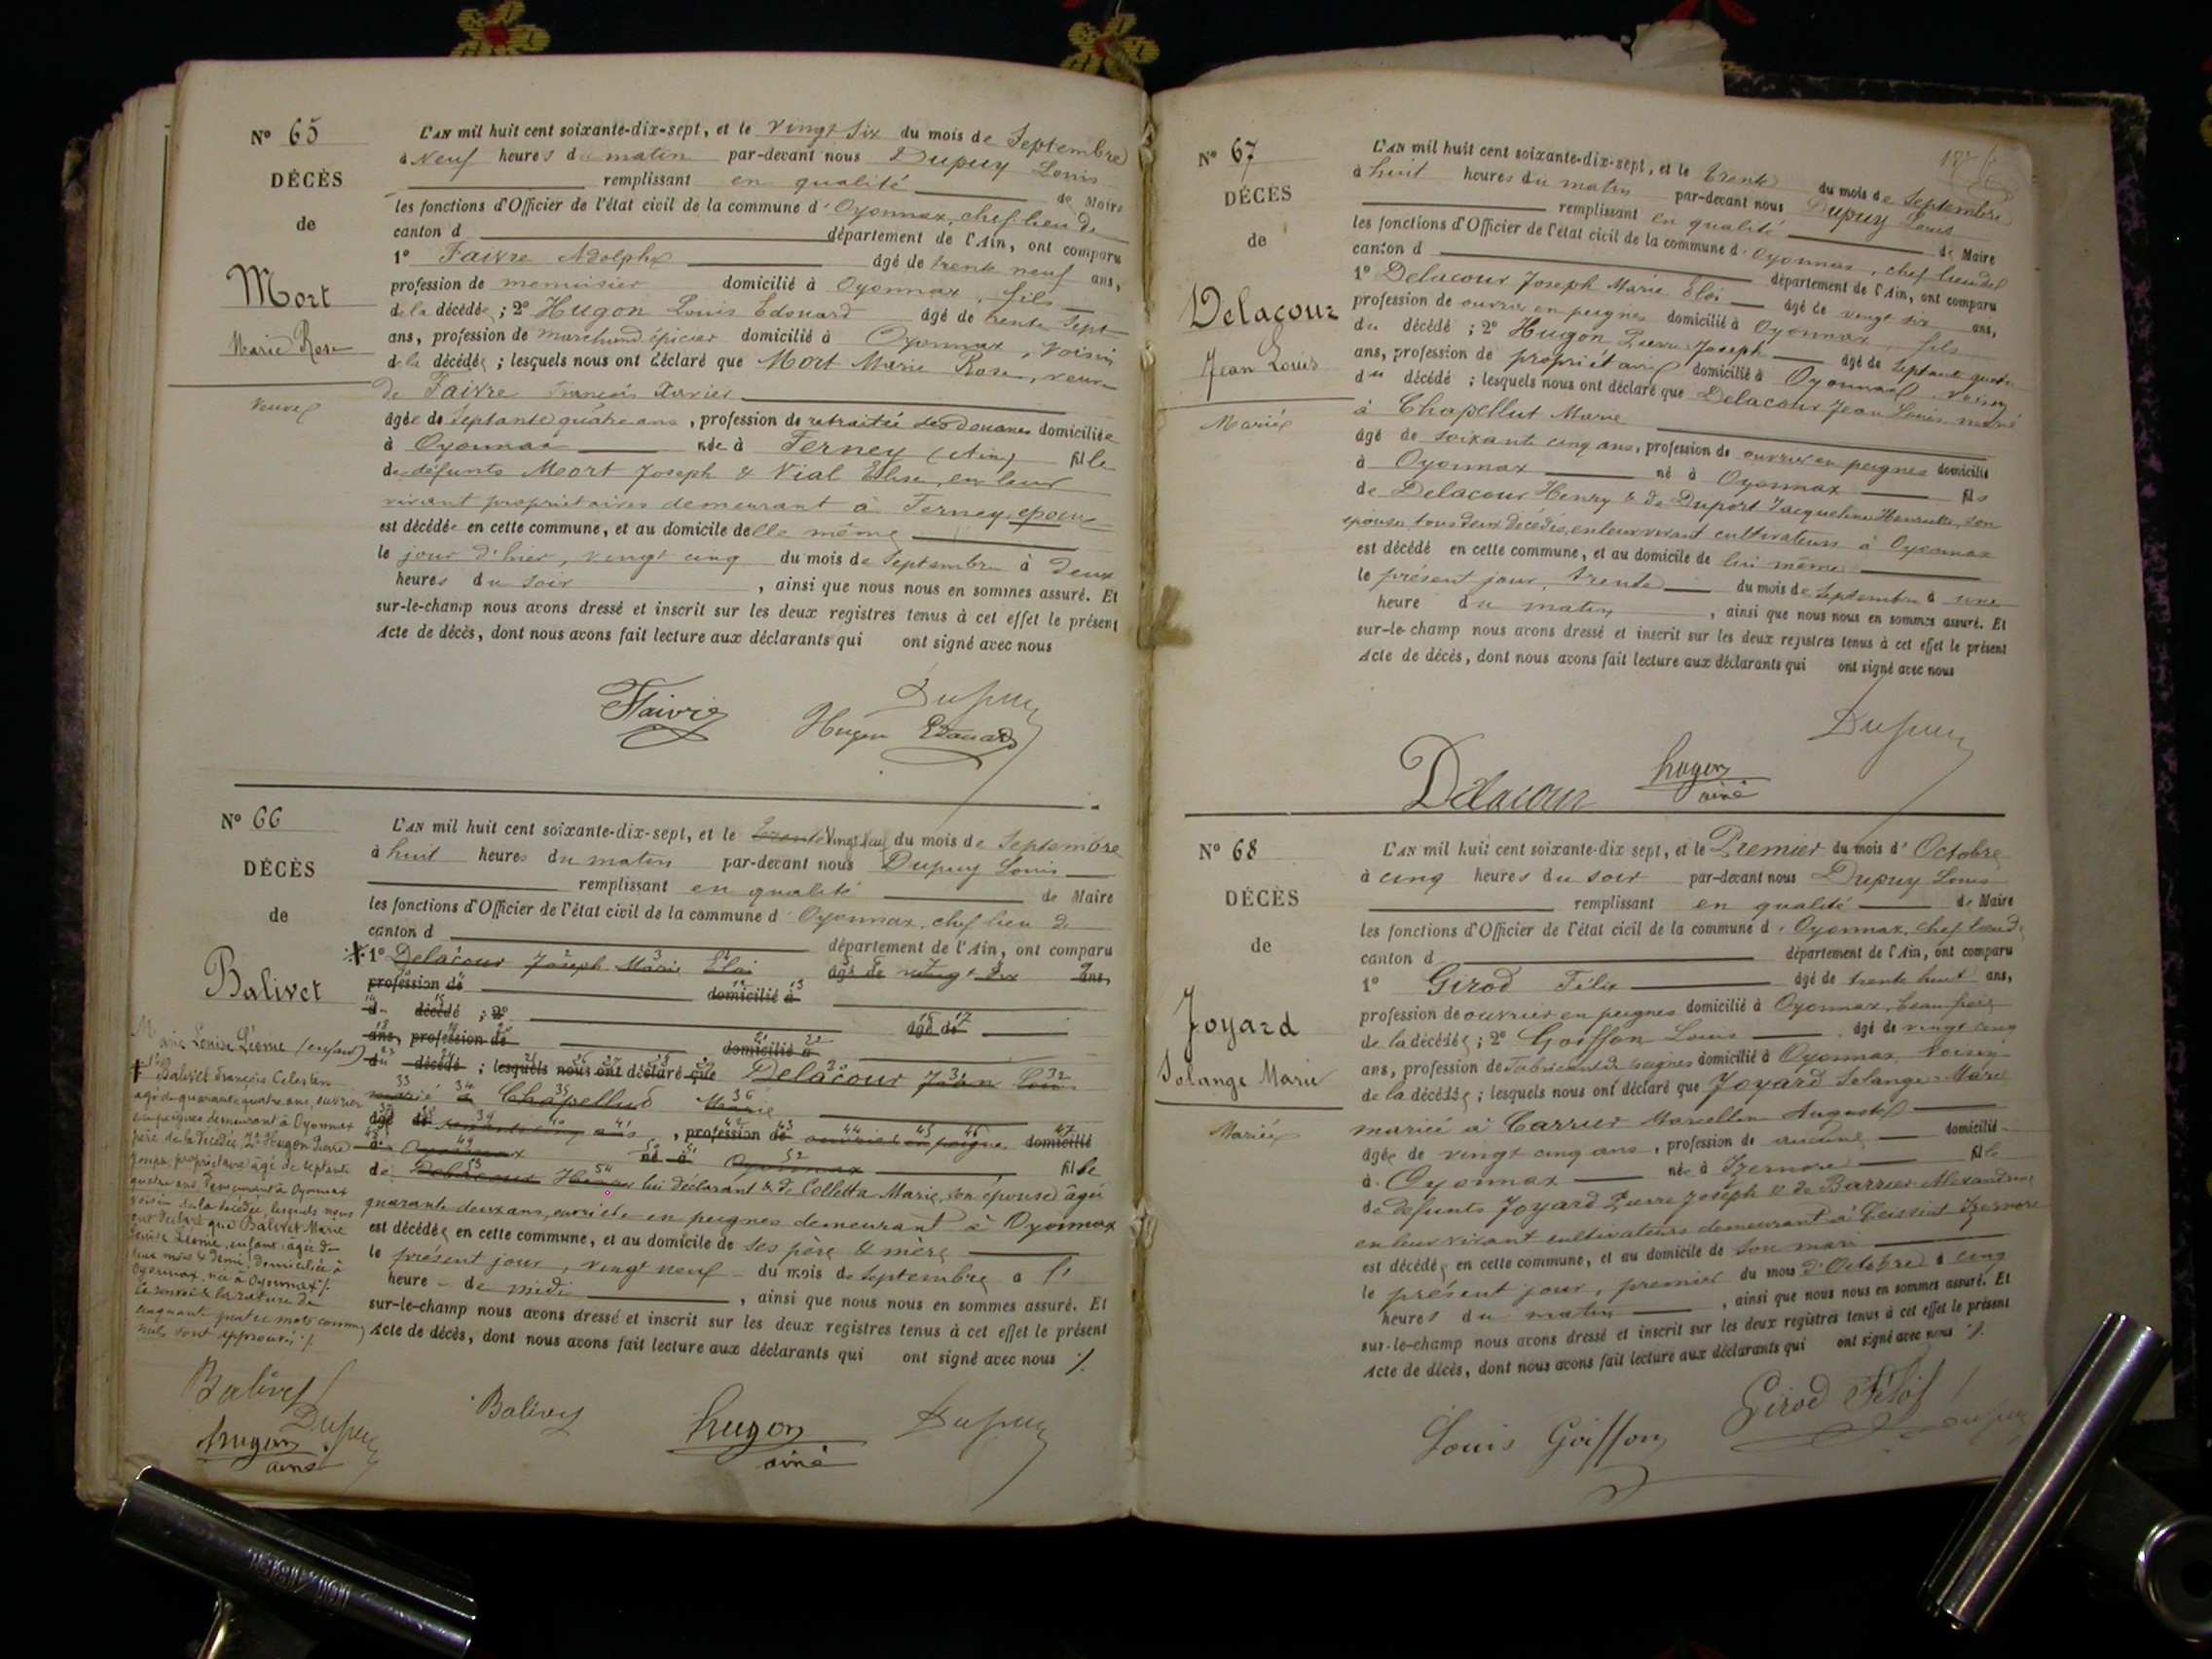 N° 65
DÉCÈS
de
Mort
Marie Rose
Veuve
L'AN mil huit cent soixante-dix-sept, et le vingt six du mois de Septembre
à Neuf heures du matin par-devant nous Dupuy Louis
remplissant en qualité de Maire
les fonctions d'Officier de l'état civil de la commune d'Oyonnax, chef lieu de
canton d département de l'Ain, ont comparu
1° Faivre Adolphe âgé de trente neuf ans,
profession de menuisier domicilié à Oyonnax, fils
de la décédée ; 2° Hugon Louis Edouard âgé de trente sept
ans, profession de marchand épicier domicilié à Oyonnax, voisin
de la décédée ; lesquels nous ont déclaré que Mort Marie Rose, veuve
de Faivre François Xavier
âgée de septante quatre ans, profession de retraitée des douanes domiciliée
à Oyonnax née à Ferney (Ain) fille
de défunts Mort Joseph & Vial Elise, en leur
vivant propriétaires demeurant à Ferney, époux
est décédée en cette commune, et au domicile d'elle même
le jour d'hier, vingt cinq du mois de Septembre à deux
heures du soir, ainsi que nous nous en sommes assuré. Et
sur-le-champ nous avons dressé et inscrit sur les deux registres tenus à cet effet le présent
Acte de décès, dont nous avons fait lecture aux déclarants qui ont signé avec nous
Faivre
Dupuy
Hugon Edouard
N° 66
DÉCÈS
de
Balivet
Marie Louise Léonie (enfant)
Balivet François Celestin
âgé de quarante quatre ans, ouvrier
en peignes demeurant à Oyonnax
père de la décédée, 2° Hugon Pierre
Joseph, propriétaire âgé de septante
quatre ans, demeurant à Oyonnax
voisin de la décédée, lesquels nous
ont déclaré que Balivet Marie
Louise Léonie, enfant, âgée de
deux mois & demi, domiciliée à
Oyonnax, née à Oyonnax ./.
Ce renvoi & la rature de
cinquante quatre mots comme
nuls sont approuvés ./.
Balivet
Dupuy
hugon
ainé
L'AN mil huit cent soixante-dix-sept, et le trente vingt neuf du mois de Septembre
à huit heures du matin par-devant nous Dupuy Louis
remplissant en qualité de Maire
les fonctions d'Officier de l'état civil de la commune d'Oyonnax, chef lieu de
canton d département de l'Ain, ont comparu
1° Delacour Joseph Marie Eloi âgé de vingt six ans,
profession de domicilié à
d décédé ; 2° âgé de
ans, profession de domicilié à
du décédé ; lesquels nous ont déclaré que Delacour Jean Louis
marié à Chapellut Marie
âgé de soixante cinq ans, profession de ouvrier en peigne domicilié
à Oyonnax né à Oyonnax
de Delacour Henry lui déclarant & de Colletta Marie, son épouse âgée fille
quarante deux ans, ouvrière en peignes demeurant à Oyonnax
est décédée en cette commune, et au domicile de ses père & mère
le présent jour, vingt neuf du mois de Septembre à l'
heure de midi, ainsi que nous nous en sommes assuré. Et
sur-le-champ nous avons dressé et inscrit sur les deux registres tenus à cet effet le présent
Acte de décès, dont nous avons fait lecture aux déclarants qui ont signé avec nous ./.
Balivet
hugon
ainé
Dupuy
N° 67
DÉCÈS
de
Delacour
Jean Louis
Marié
L'AN mil huit cent soixante-dix-sept, et le trente du mois de Septembre
à huit heures du matin par-devant nous Dupuy Louis
remplissant en qualité de Maire
les fonctions d'Officier de l'état civil de la commune d'Oyonnax, chef lieu de
canton d département de l'Ain, ont comparu
1° Delacour Joseph Marie Eloi âgé de vingt six ans,
profession de ouvrier en peignes domicilié à Oyonnax, fils
du décédé ; 2° Hugon Pierre Joseph âgé de septante quatre
ans, profession de propriétaire domicilié à Oyonnax, voisin
du décédé ; lesquels nous ont déclaré que Delacour Jean Louis marié
à Chapellut Marie
âgé de soixante cinq ans, profession de ouvrier en peignes domicilié
à Oyonnax né à Oyonnax fils
de Delacour Henry & de Duport Jacqueline Henriette, son
épouse, tous deux décédés, en leur vivant cultivateurs à Oyonnax
est décédé en cette commune, et au domicile de lui même
le présent jour, trente du mois de Septembre à une
heure du matin, ainsi que nous nous en sommes assuré. Et
sur-le-champ nous avons dressé et inscrit sur les deux registres tenus à cet effet le présent
Acte de décès, dont nous avons fait lecture aux déclarants qui ont signé avec nous
Dupuy
Delacour
hugon
ainé
N° 68
DÉCÈS
de
Joyard
Solange Marie
Mariée
L'AN mil huit cent soixante-dix sept, et le Premier du mois d'Octobre
à cinq heures du soir par-devant nous Dupuy Louis
remplissant en qualité de Maire
les fonctions d'Officier de l'état civil de la commune d'Oyonnax, chef lieu de
canton d département de l'Ain, ont comparu
1° Girod Félix âgé de trente huit ans,
profession de ouvrier en peignes domicilié à Oyonnax, beau frère
de la décédée ; 2° Goiffon Louis âgé de vingt cinq
ans, profession de Fabricant de peignes domicilié à Oyonnax, voisin
de la décédée ; lesquels nous ont déclaré que Joyard Solange Marie
mariée à Carrier Marcellin Auguste
âgée de vingt cinq ans, profession de aucune domicilié
à Oyonnax née à Izernore fille
de défunts Joyard Pierre Joseph & de Barrier Alexandrine
en leur vivant cultivateurs demeurant à Ceissiat Izernore
est décédée en cette commune, et au domicile de son mari
le présent jour, premier du mois d'Octobre à cinq
heures du matin, ainsi que nous nous en sommes assuré. Et
sur-le-champ nous avons dressé et inscrit sur les deux registres tenus à cet effet le présent
Acte de décès, dont nous avons fait lecture aux déclarants qui ont signé avec nous ./.
Louis Goiffon
Girod Félix
Dupuy